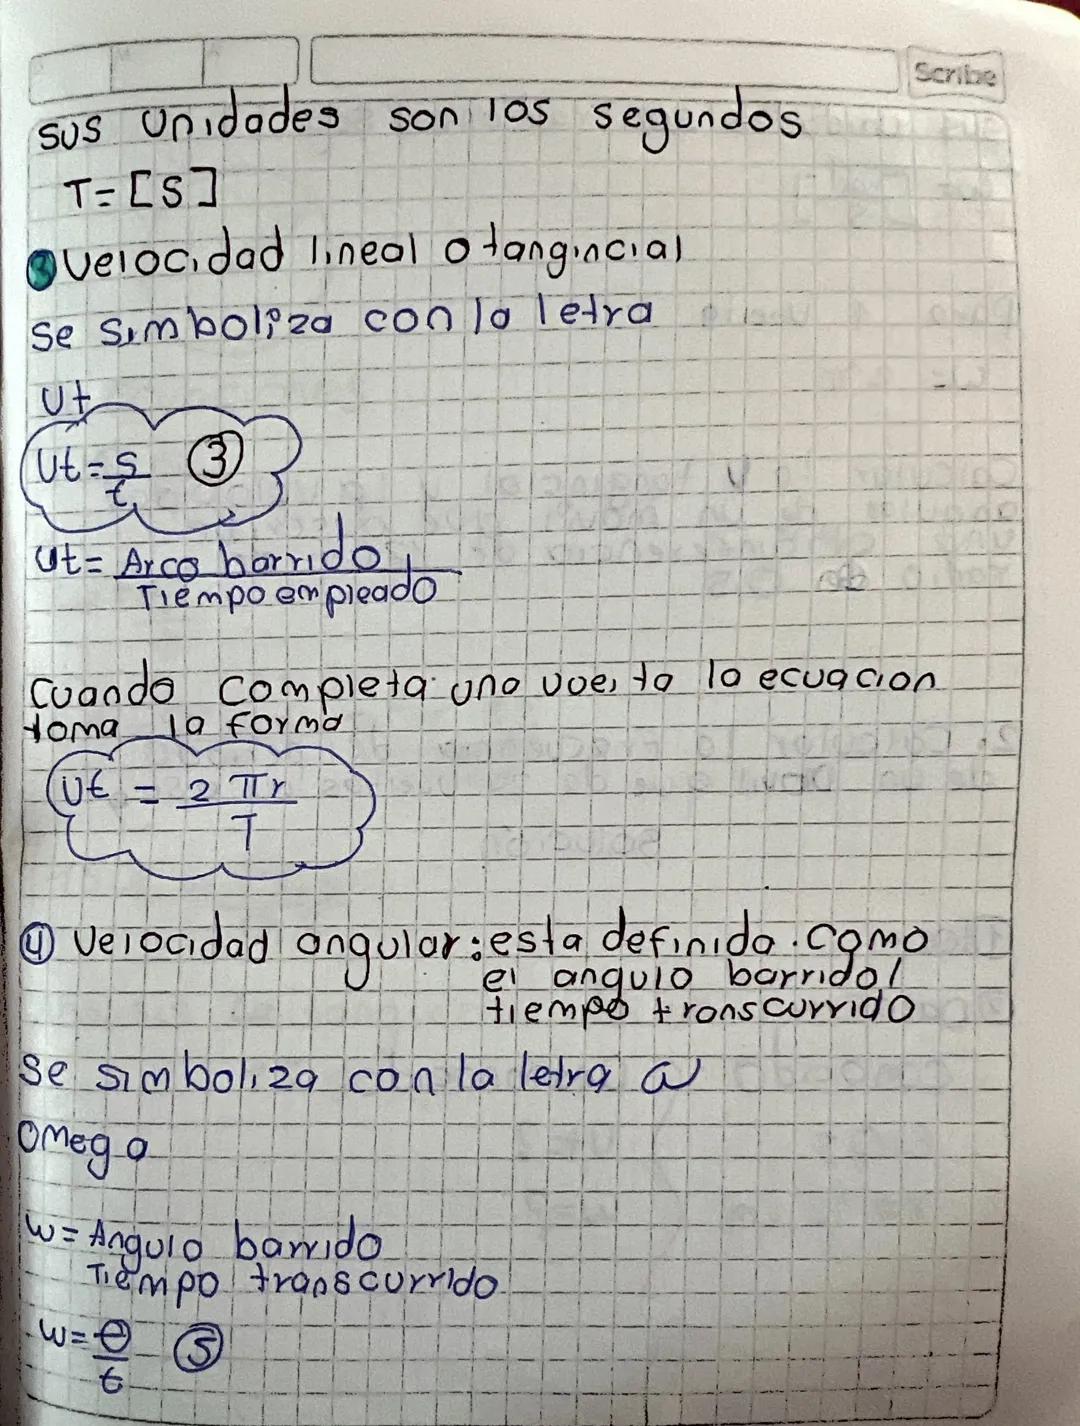 Scribe
sus unidades son los segundos
T=[S]
3 velocidad lineal o tangincial
se simboliza con la letra
Ut
Ut = s/t 3
Ut = Arco barrido
Tiempo empleado
Cuando completa una vuelta la ecuacion
toma la forma
Ut = 2 πr
T
4 velocidad angular: esta definida como
el angulo barrido/
tiempo transcurrido
Se simboliza con la letra ω
Omega
w = Angulo barrido
Tiempo transcurrido
w = θ 5
t